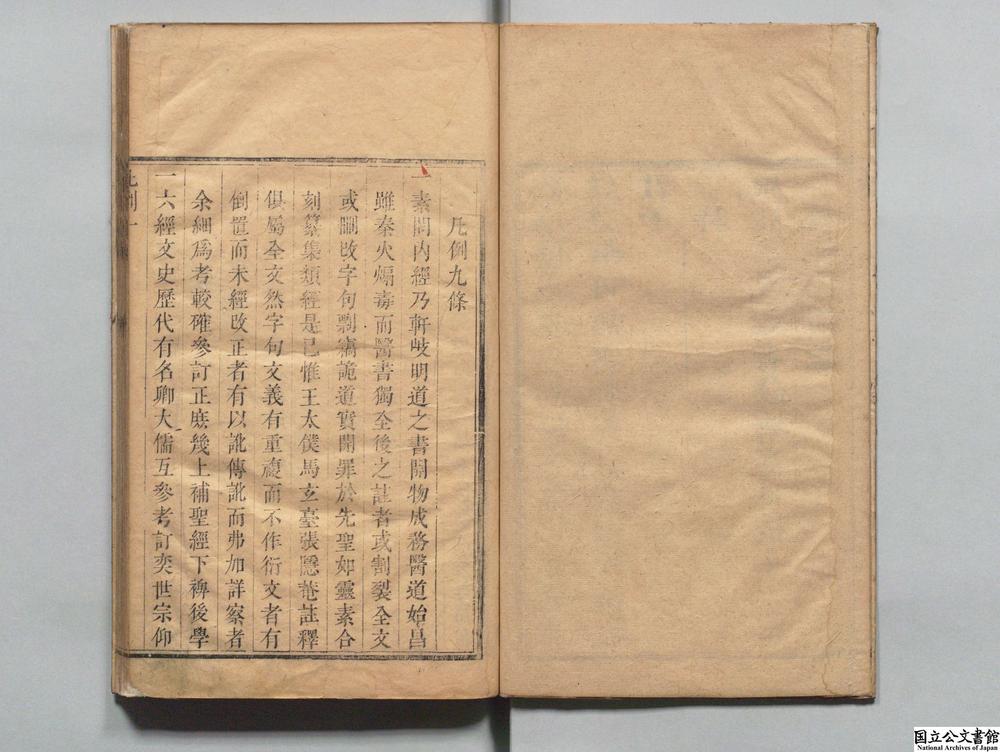 凡例九條
一素問內經乃軒岐明道之書開物成務醫道始昌
雖秦火煽毒而醫書獨全後之註者或割裂全文
或刪改字句剽竊詭道實開罪於先聖如靈素合
刻纂集類經是已惟王太僕馬玄臺張隱菴註釋
俱屬全文然字句文義有重複而不作衍文者有
倒置而未經改正者有以訛傳訛而弗加詳察者
余細爲考較確參訂正庶幾上補聖經下裨後學
一六經文史歷代有名卿大儒互參考訂奕世宗仰
凡例 一
国立公文書館
National Archives of Japan